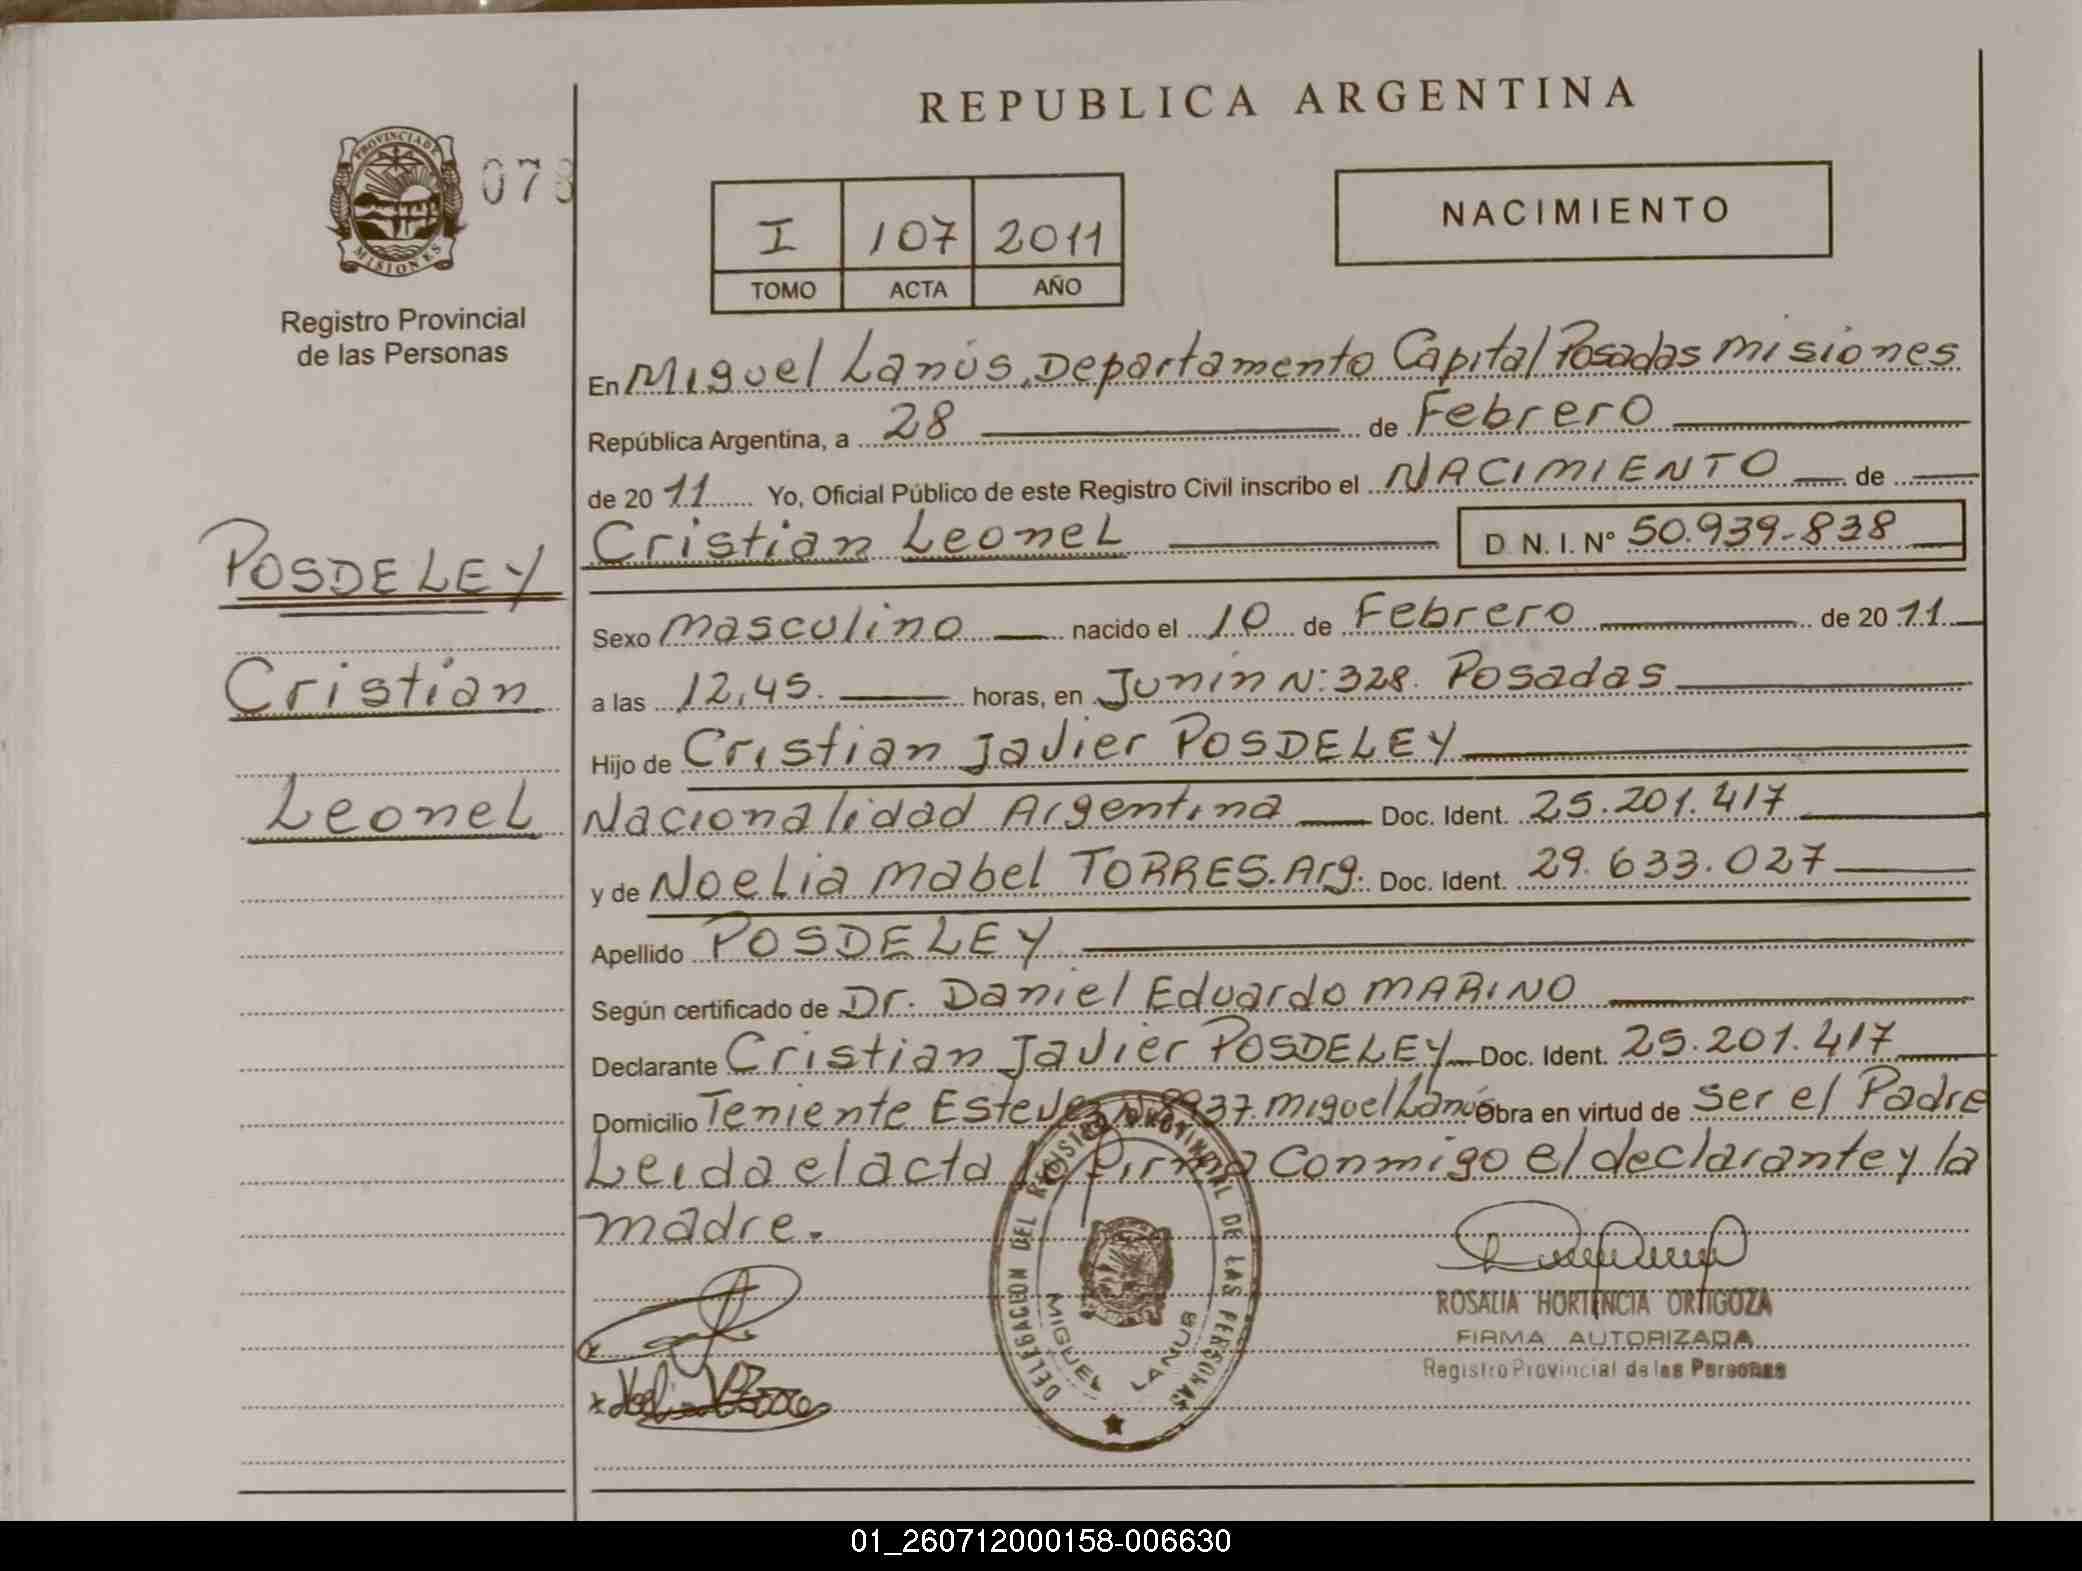 REPUBLICA ARGENTINA
PROVINCIA DE
MISIONES
07
Registro Provincial
de las Personas
I 107 2011
TOMO ACTA AÑO
NACIMIENTO
En Miguel Lanús, Departamento Capital Posadas Misiones
República Argentina, a 28 de Febrero
de 2011 Yo, Oficial Público de este Registro Civil inscribo el NACIMIENTO de
Cristian Leonel D N. I. Nº 50.939-838
POSDELEY
Cristian
Leonel
Sexo masculino nacido el 10 de Febrero de 2011
a las 12,45. horas, en Junín N: 328. Posadas
Hijo de Cristian Javier POSDELEY
Nacionalidad Argentina Doc. Ident. 25.201.417
y de Noelia Mabel TORRES. Arg. Doc. Ident. 29.633.027
Apellido POSDELEY
Según certificado de Dr. Daniel Eduardo MARINO
Declarante Cristian Javier POSDELEY Doc. Ident. 25.201.417
Domicilio Teniente Estevez Miguel Lanús Obra en virtud de ser el Padre
Leida el acta la Firma Conmigo el declarante y la
madre.
DELEGACION DEL REGISTRO PROVINCIAL DE LAS PERSONAS
MIGUEL LANUS
ROSALIA HORTENCIA ORTIGOZA
FIRMA AUTORIZADA
Registro Provincial de las Personas
01_260712000158-006630